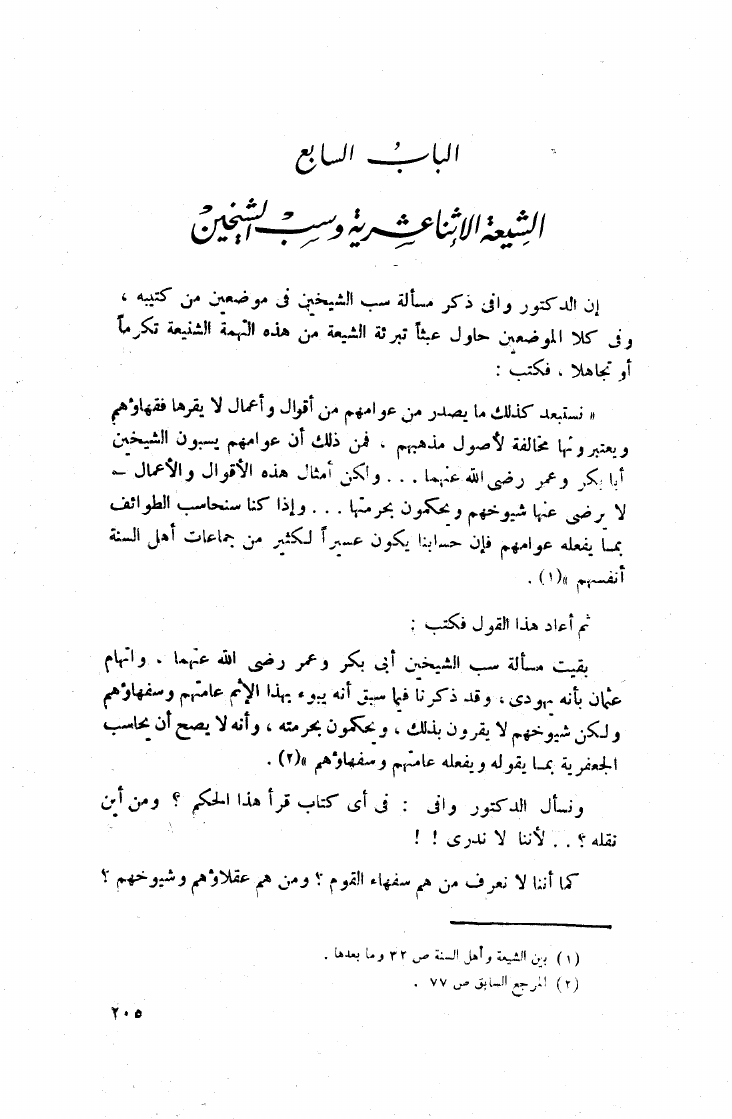 الباب السابع
الشيعة الاثنا عشرية وسب الشيخين
إن الدكتور وافى ذكر مسألة سب الشيخين فى موضعين من كتيبه ،
وفى كلا الموضعين حاول عبثاً تبرئة الشيعة من هذه التهمة الشنيعة تكرماً
أو تجاهلا ، فكتب :
« نستبعد كذلك ما يصدر من عوامهم من أقوال وأعمال لا يقرها فقهاؤهم
ويعتبرونها مخالفة لأصول مذهبهم . فمن ذلك أن عوامهم يسبون الشيخين
أبا بكر وعمر رضى الله عنهما ... ولكن أمثال هذه الأقوال والأعمال –
لا يرضى عنها شيوخهم ويحكمون بحرمتها ... وإذا كنا سنحاسب الطوائف
بمـا يفعله عوامهم فإن حسابنا يكون عسيراً لكثير من جماعات أهل السنة
أنفسهم »(١) .
ثم أعاد هذا القول فكتب :
بقيت مسألة سب الشيخين أبى بكر وعمر رضى الله عنهما . واتهام
عثمان بأنه يهودى ، وقد ذكرنا فيما سبق أنه يبوء بهذا الإثم عامتهم وسفهاؤهم
ولكن شيوخهم لا يقرون بذلك ، ويحكمون بحرمته ، وأنه لا يصح أن يحاسب
الجعفرية بمـا يقوله ويفعله عامتهم وسفهاؤهم »(٢) .
ونسأل الدكتور وافى : فى أى كتاب قرأ هذا الحكم ؟ ومن أين
نقله ؟ .. لأننا لا ندرى ! !
كما أننا لا نعرف من هم سفهاء القوم ؟ ومن هم عقلاؤهم وشيوخهم ؟
(١) بين الشيعة وأهل السنة ص ٣٢ وما بعدها .
(٢) المرجع السابق ص ٧٧ .
٢٠٥